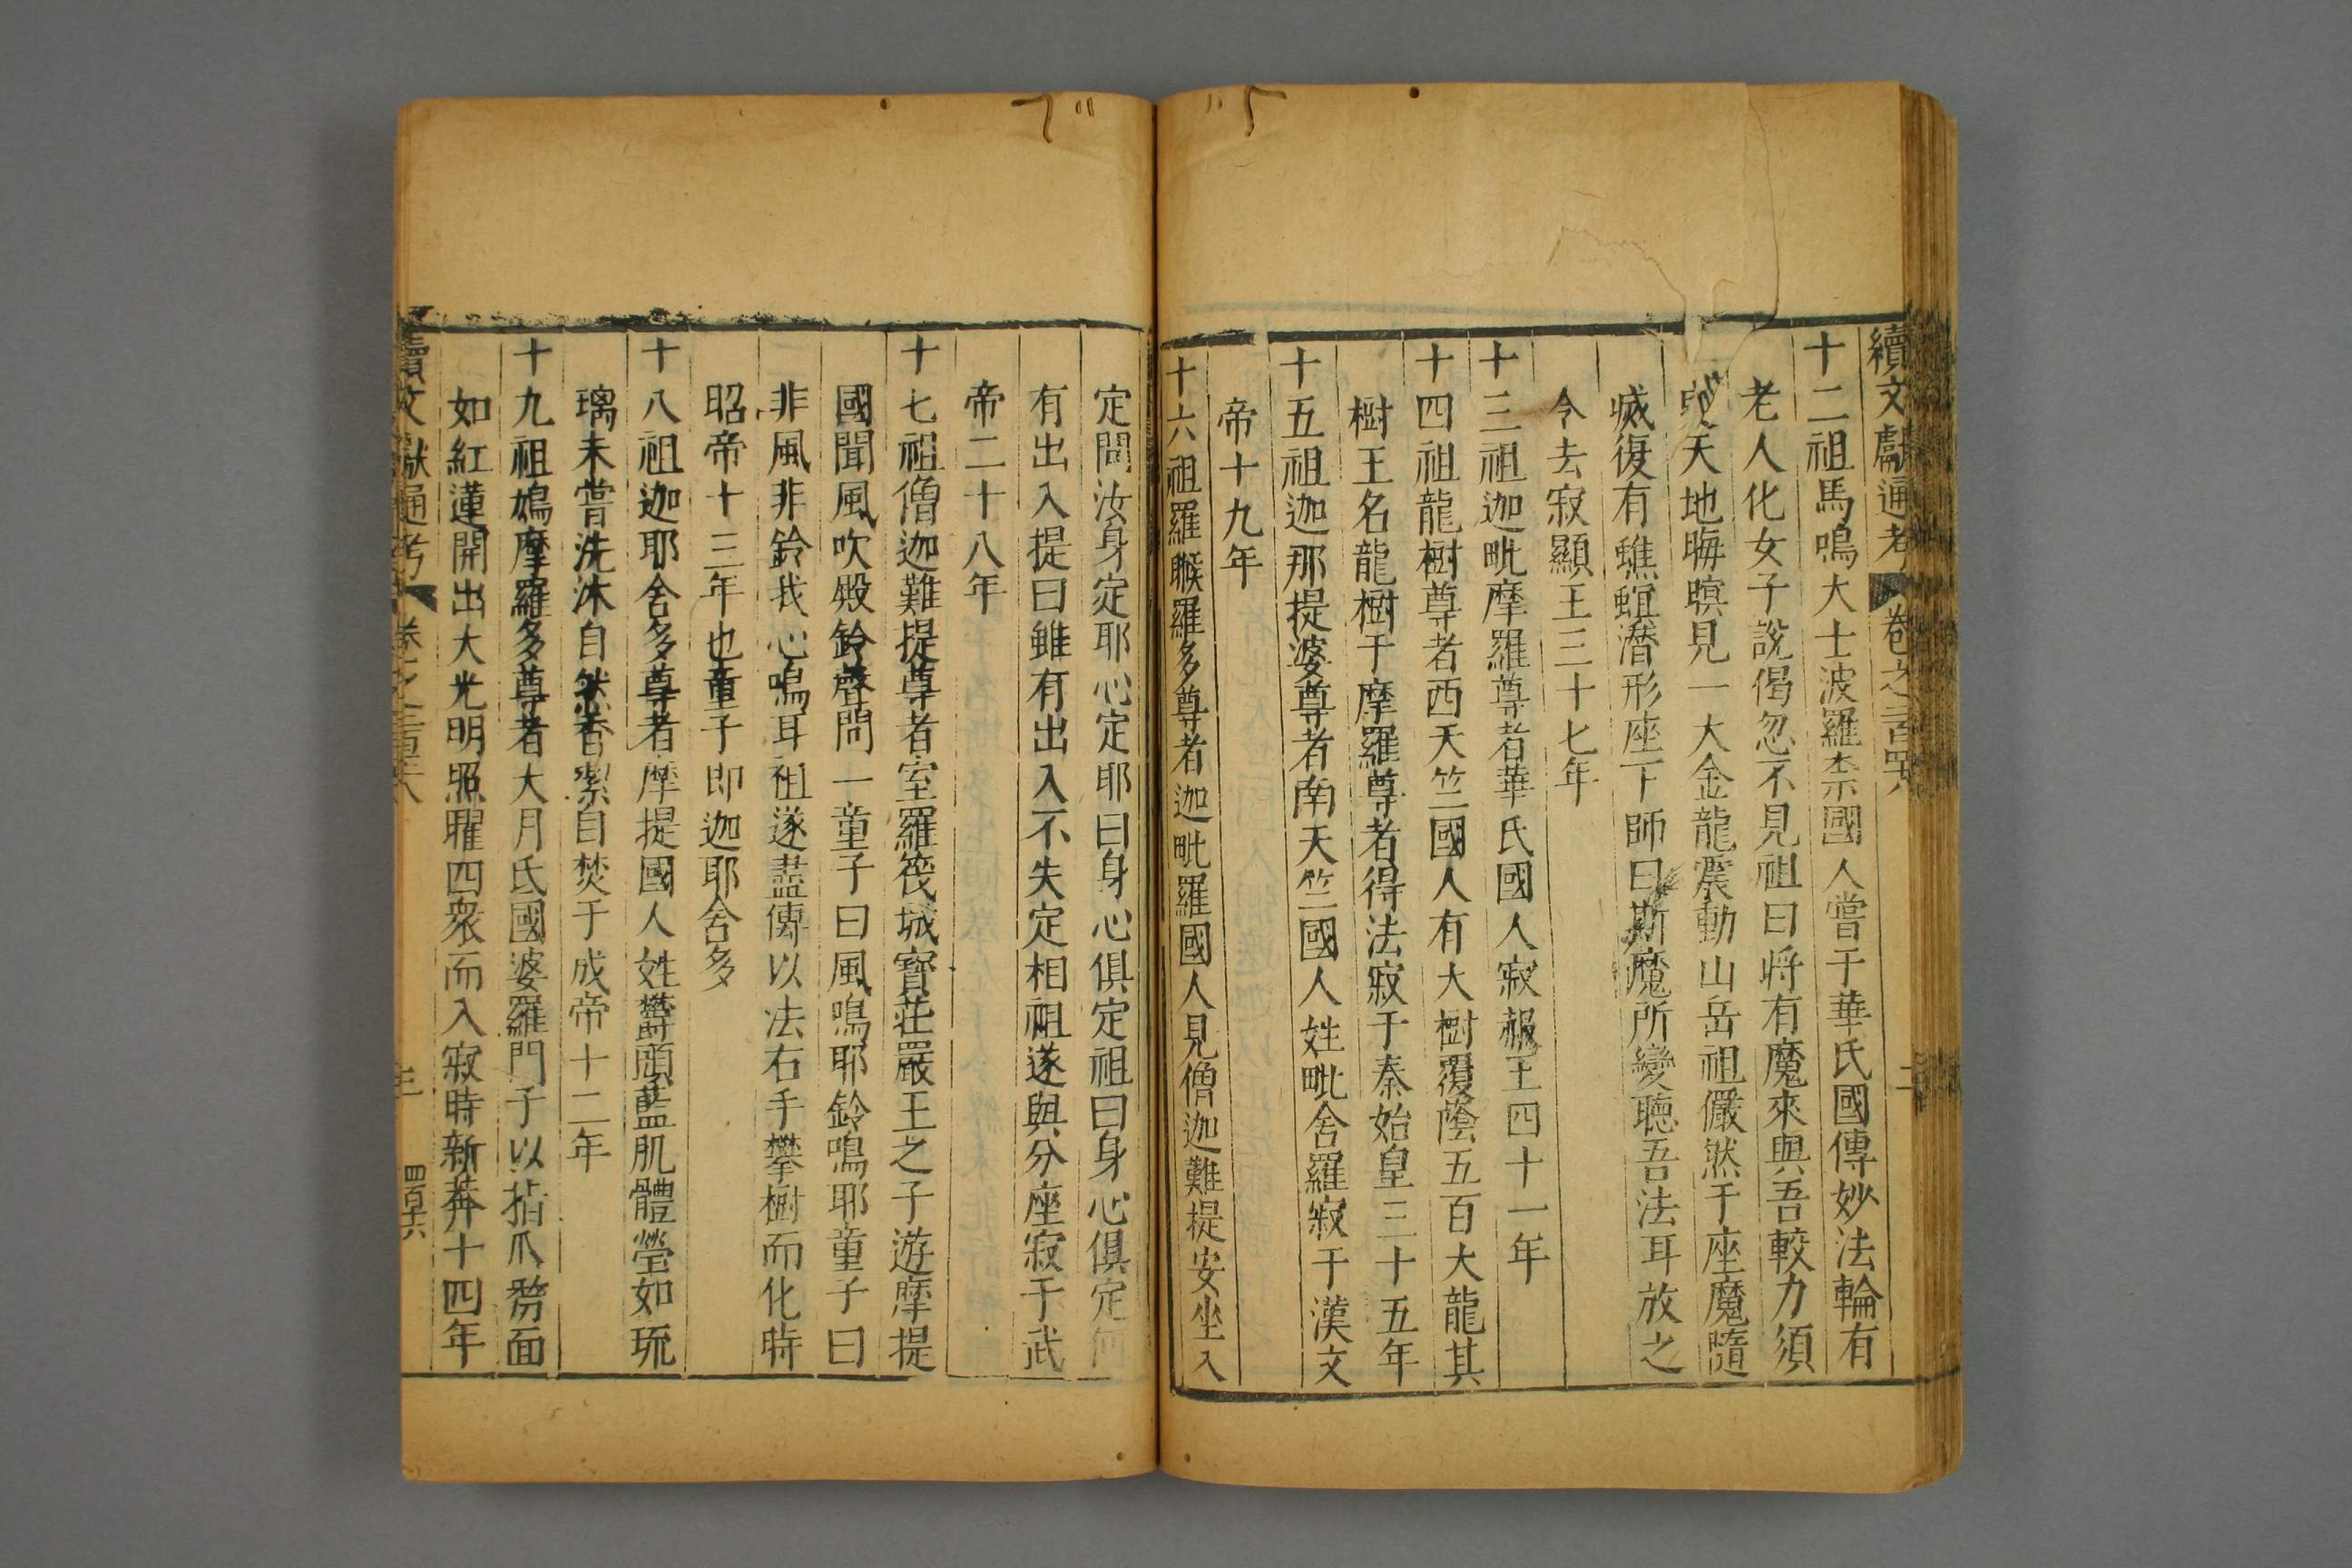 續文獻通考 卷之二百四六 二
十二祖馬鳴大士波羅柰國人嘗于華氏國傳妙法輪有
老人化女子說偈忽不見祖曰將有魔來與吾較力須
臾天地晦暝見一大金龍震動山岳祖儼然于座魔隨
滅復有蟭螟潛形座下師曰斯魔所變聽吾法耳放之
令去寂顯王三十七年
十三祖迦毗摩羅尊者華氏國人寂赧王四十一年
十四祖龍樹尊者西天竺國人有大樹覆蔭五百大龍其
樹王名龍樹于摩羅尊者得法寂于秦始皇三十五年
十五祖迦那提婆尊者南天竺國人姓毗舍羅寂于漢文
帝十九年
十六祖羅睺羅多尊者迦毗羅國人見僧迦難提安坐入
定問汝身定耶心定耶曰身心俱定祖曰身心俱定何
有出入提曰雖有出入不失定相祖遂與分座寂于武
帝二十八年
十七祖僧迦難提尊者室羅筏城寶莊嚴王之子遊摩提
國聞風吹殿鈴聲問一童子曰風鳴耶鈴鳴耶童子曰
非風非鈴我心鳴耳祖遂盡傳以法右手攀樹而化時
昭帝十三年也童子即迦耶舍多
十八祖迦耶舍多尊者摩提國人姓鬱頭藍肌體瑩如琉
璃未嘗洗沐自然香潔自焚于成帝十二年
十九祖鳩摩羅多尊者大月氏國婆羅門子以指爪剺面
如紅蓮開出大光明照曜四衆而入寂時新莽十四年
續文獻通考 卷之 三 四百六